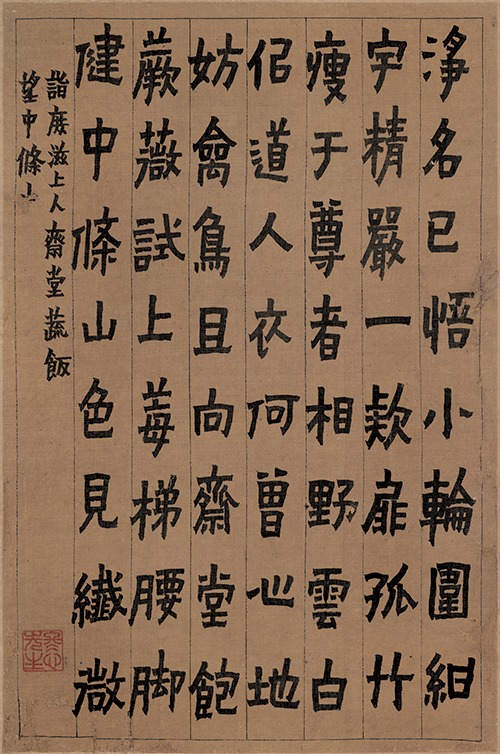 淨名已悟小輪圍紺
宇精嚴一欵扉孤竹
瘦于尊者相野雲白
佀道人衣何曽心地
妨禽鳥且向齋堂飽
蕨薇試上莓梯腰脚
健中條山色見纖微
詣度滋上人齋堂蔬飯
望中條山
冬心先生